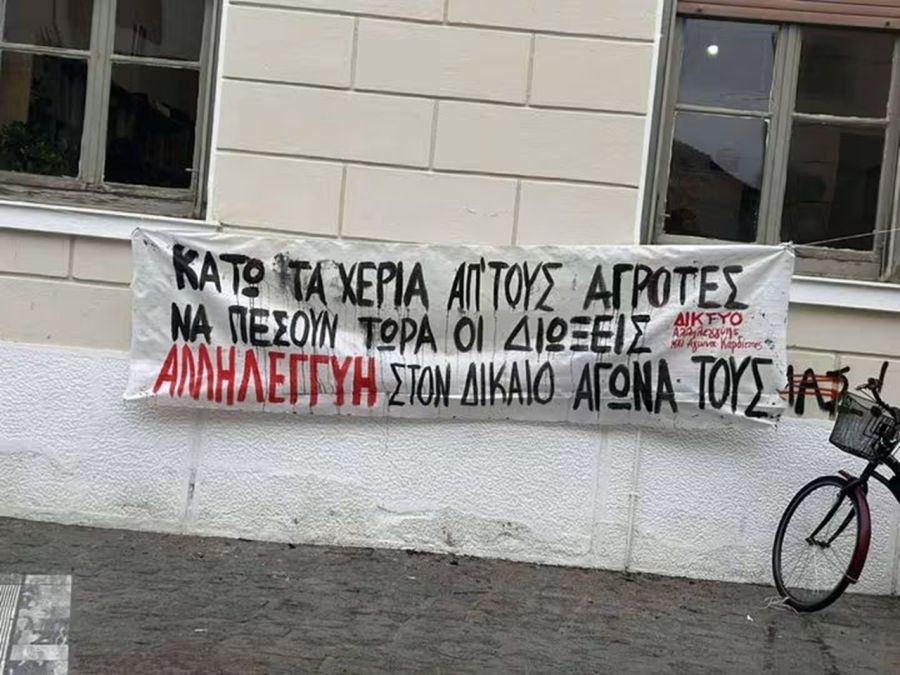 ΚΑΤΩ ΤΑ ΧΕΡΙΑ ΑΠ' ΤΟΥΣ ΑΓΡΟΤΕΣ
ΝΑ ΠΕΣΟΥΝ ΤΩΡΑ ΟΙ ΔΙΩΞΕΙΣ
ΔΙΚΤΥΟ
Αλληλεγγύης
και Αγώνα Καρδίτσας
ΑΛΛΗΛΕΓΓΥΗ ΣΤΟΝ ΔΙΚΑΙΟ ΑΓΩΝΑ ΤΟΥΣ